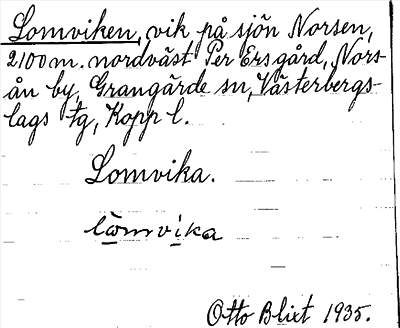 Lomviken, vik på sjön Norsen,
2100 m. nordväst Per Ersgård, Nors-
ån by, Grangärde sn, Västerbergs-
lags tg, Kopp l.
Lomvika.
lòmvika
Otto Blixt 1935.